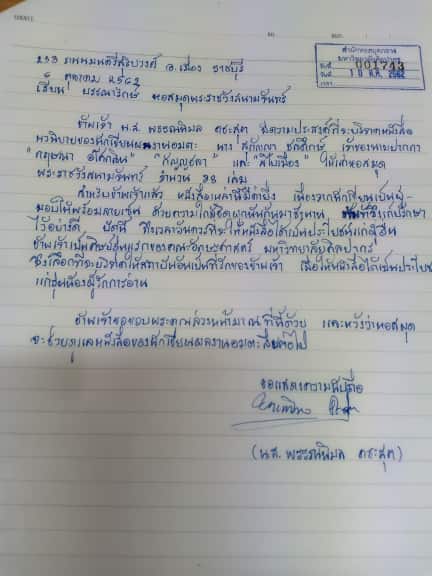 สำนักหอสมุดกลาง
001743
วันที่ 10 ต.ค. 2562
เวลา
233 ถนนมนตรีสุริยวงศ์ อ.เมือง ราชบุรี
ตุลาคม 2562
เรียน บรรณารักษ์ หอสมุดพระราชวังสนามจันทร์
ข้าพเจ้า น.ส. พรรณพิมล คชะสุต มีความประสงค์ที่จะบริจาคหนังสือ
นวนิยายของนักเขียนผลงานอมตะ นาง สุกัญญา ชลศึกษ์ เจ้าของนามปากกา
"กฤษณา อโศกสิน" "กัญญ์ชลา" และ "สไบเมือง" ให้แก่หอสมุด
พระราชวังสนามจันทร์ จำนวน 98 เล่ม
สำหรับข้าพเจ้าแล้ว หนังสือเหล่านี้มีค่ายิ่ง เนื่องจากนักเขียนเป็นผู้
มอบให้พร้อมลายเซ็น ด้วยความใกล้ชิดผูกพันกันมาช้านาน ข้าพเจ้าจึงเก็บรักษา
ไว้อย่างดี บัดนี้ ถึงเวลาอันควรที่จะให้หนังสือได้เป็นประโยชน์แก่ผู้อื่น
ข้าพเจ้าเป็นศิษย์รุ่นแรกของคณะอักษรศาสตร์ มหาวิทยาลัยศิลปากร
จึงเลือกที่จะบริจาคให้สถาบันอันเป็นที่รักของข้าพเจ้า เพื่อให้หนังสือได้เป็นประโยชน์
แก่รุ่นน้องผู้รักการอ่าน
ข้าพเจ้าขอขอบพระคุณล่วงหน้ามา ณ ที่นี้ด้วย และหวังว่าหอสมุด
จะช่วยดูแลหนังสือของนักเขียนผลงานอมตะสืบต่อไป
ขอแสดงความนับถือ
(น.ส. พรรณพิมล คชะสุต)